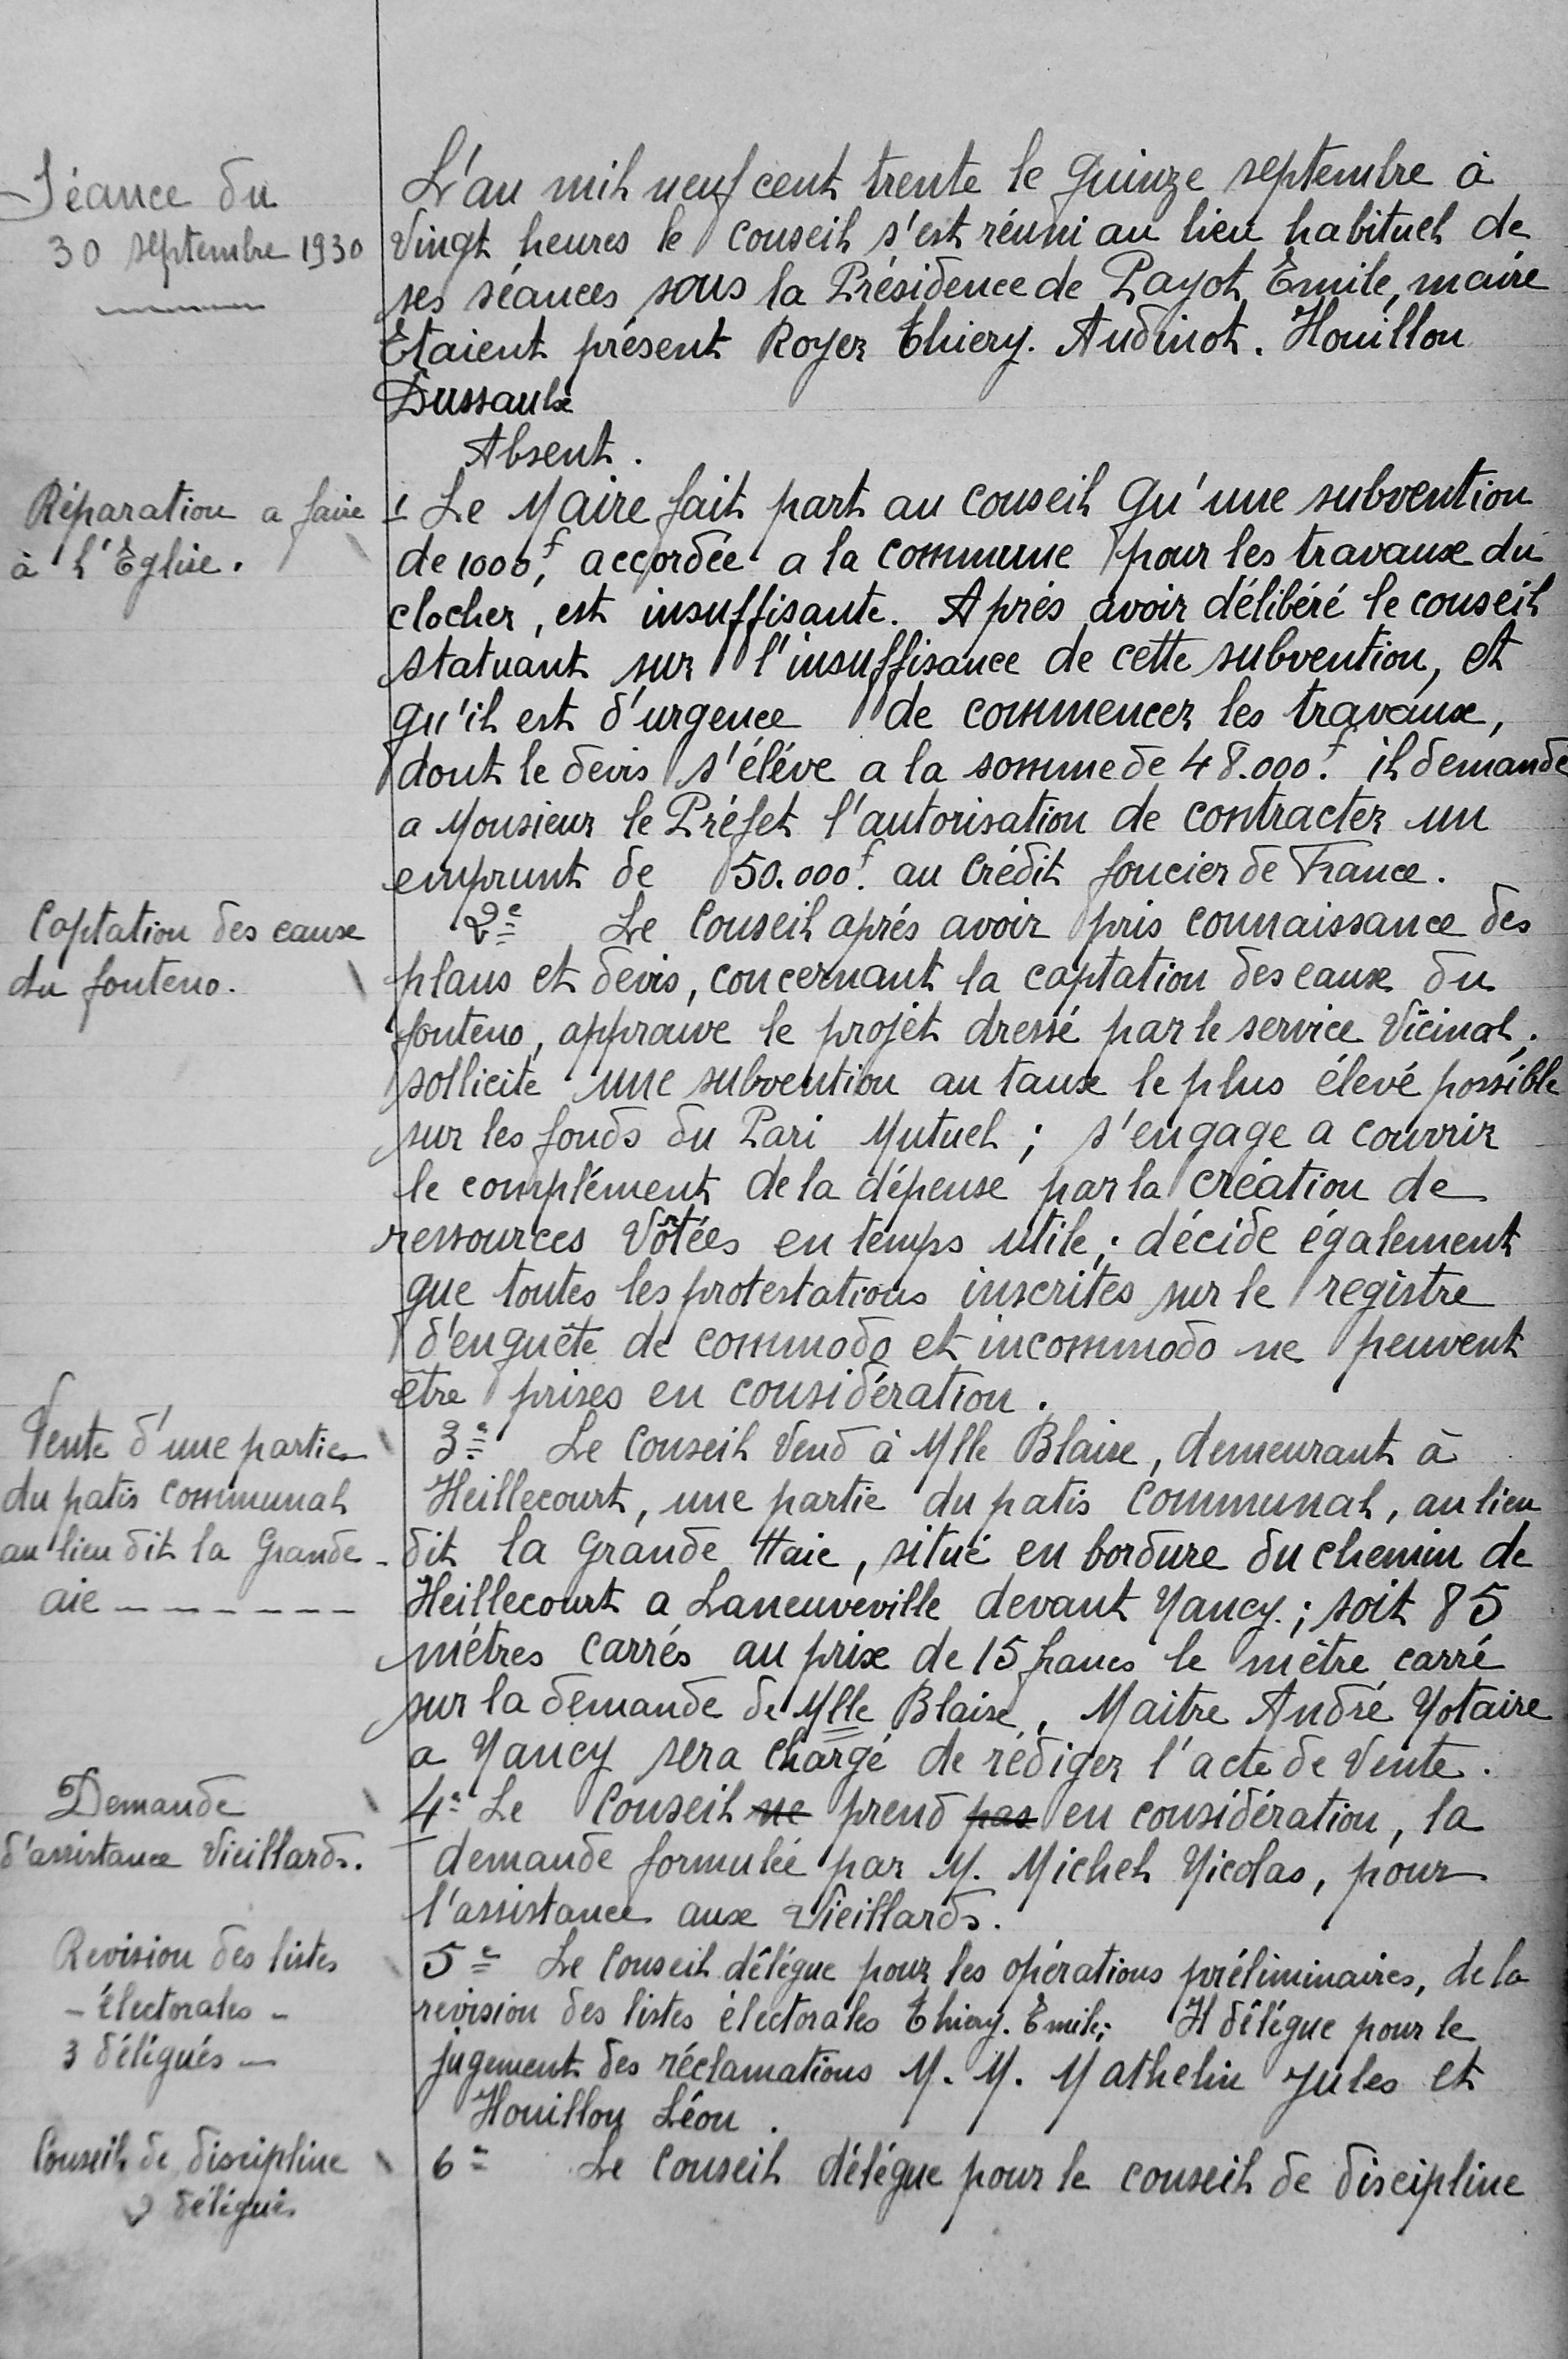 Séance du
30 septembre 1930
L'an mil neuf cent trente le quinze septembre à
vingt heures le conseil s'est réuni au lieu habituel de
ses séances sous la Présidence de Payot Emile, maire
Etaient présent Royer Thiery. Audinot. Houillon
Dussaulx
Absent.
Réparation a faire
à l'Eglise.
1 Le Maire fait part au conseil qu'une subvention
de 1000f, accordée a la commune pour les travaux du
clocher, est insuffisante. Aprés avoir délibéré le conseil
statuant sur l'insuffisance de cette subvention, et
qu'il est d'urgence de commencer les travaux,
dont le devis s'éléve a la somme de 48.000f. il demande
a Monsieur le Préfet l'autorisation de contracter un
emprunt de 50.000f. au Crédit foncier de France.
Captation des eaux
du fonteno.
2e Le Conseil aprés avoir pris connaissance des
plans et devis, concernant la captation des eaux du
fonteno, approuve le projet dressé par le service Vicinal.
sollicite une subvention au taux le plus élevé possible
sur les fonds du Pari Mutuel ; s'engage a couvrir
le complément de la dépense par la création de
ressources Vôtées en temps utile ; décide également
que toutes les protestations inscrites sur le registre
d'enquête de commodo et incommodo ne peuvent
etre prises en considération.
Vente d'une partie
du patis communal
au lieu dit la Grande
aie - - - - - - -
3e Le Conseil Vend à Mlle Blaise, demeurant à
Heillecourt, une partie du patis Communal, au lieu
dit la Grande Haie, situé en bordure du chemin de
Heillecourt a Laneuveville devant Nancy ; soit 85
métres carrés au prix de 15 francs le mètre carré
sur la demande de Mlle Blaise, Maitre André Notaire
a Nancy sera chargé de rédiger l'acte de Vente.
Demande
d'assistance Vieillards.
4e Le Conseil ne prend pas en considération, la
demande formulée par M. Michel Nicolas, pour
l'assistance aux Vieillards.
Revision des listes
- électorales -
3 délégués -
5e Le Conseil délégue pour les opérations préliminaires, de la
revision des listes électorales Thiery. Emile; Il délégue pour le
jugement des réclamations M. M. Mathelin Jules et
Houillon Léon.
Conseil de discipline
2 délégués
6e Le Conseil délégue pour le conseil de discipline